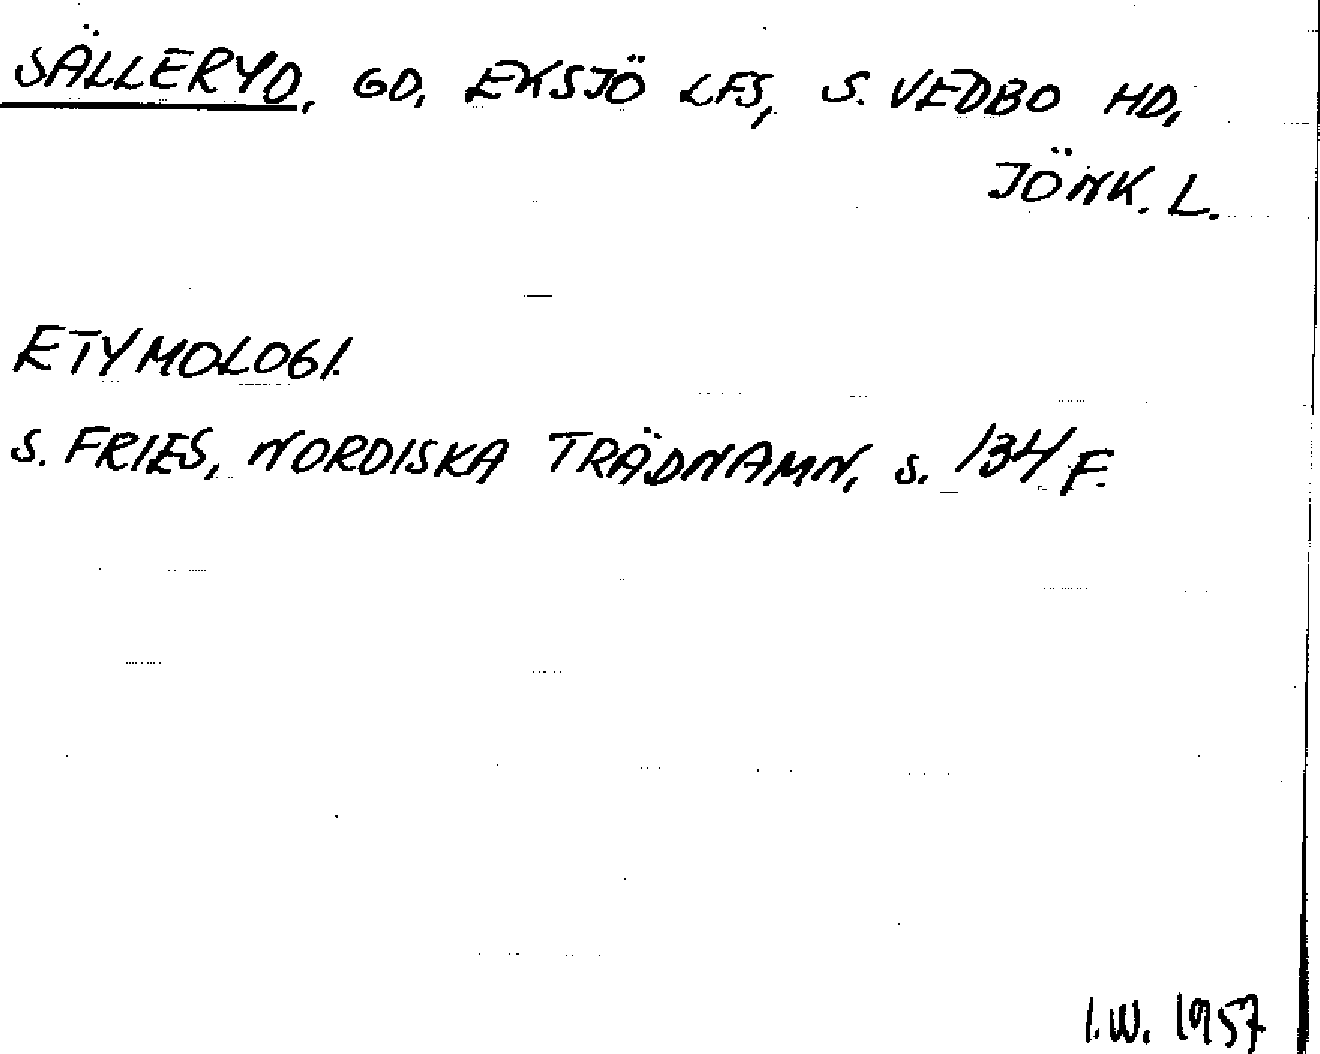 SÄLLERYD, GD, EKSJÖ LFS, S. VEDBO HD,
JÖNK. L.
ETYMOLOGI.
S. FRIES, NORDISKA TRÄDNAMN, S. 134 F.
I.W. 1957